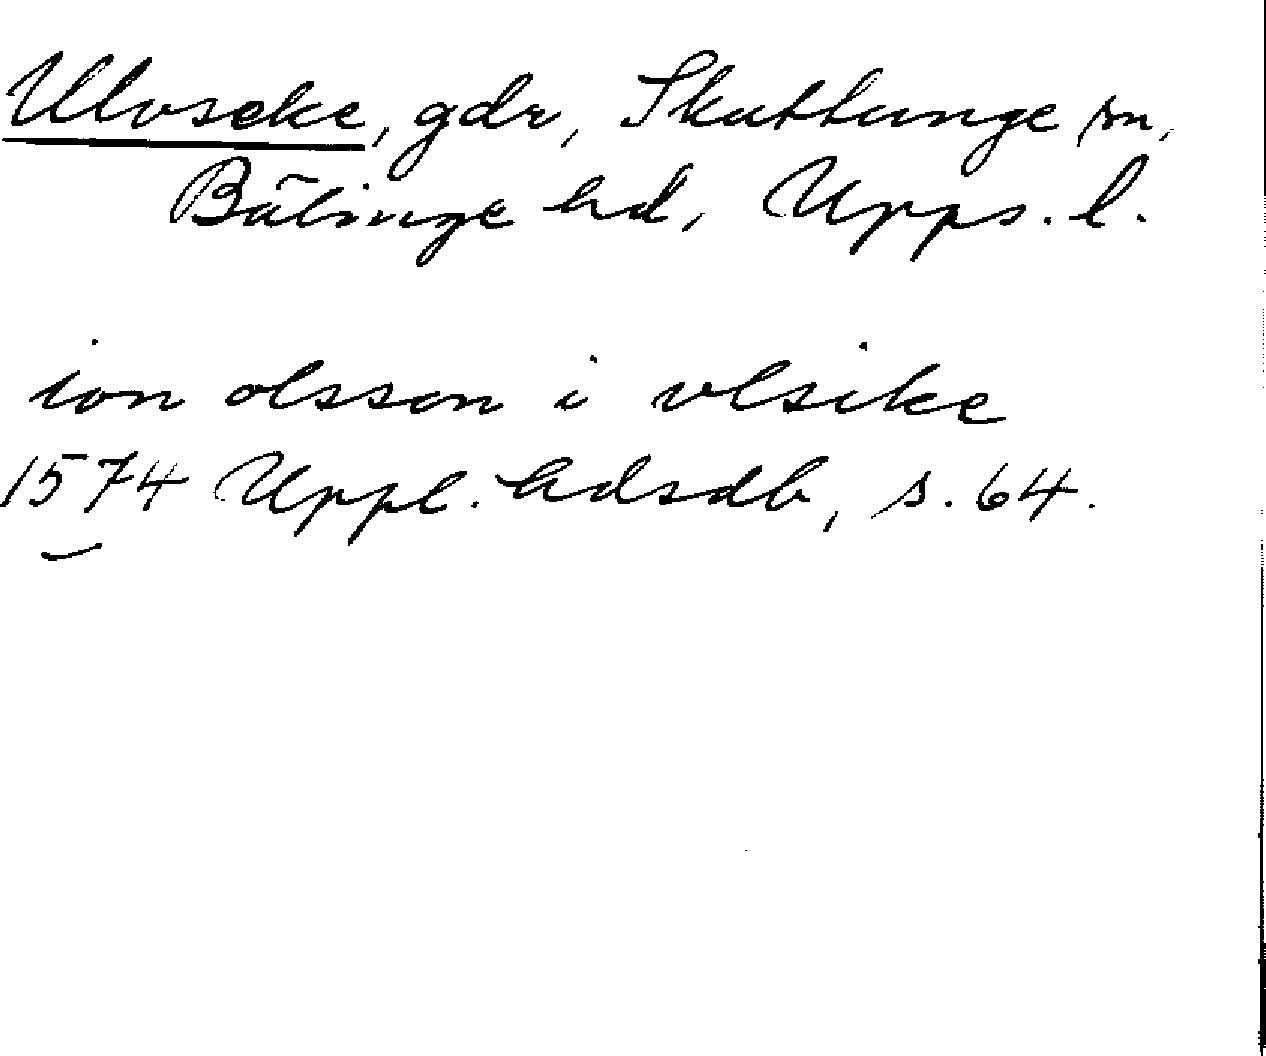 Ulvseke, gdr, Skuttunge sn,
Bälinge hd, Upps. l.
ion olsson i vlsike
1574 Uppl. hdsdb, s. 64.